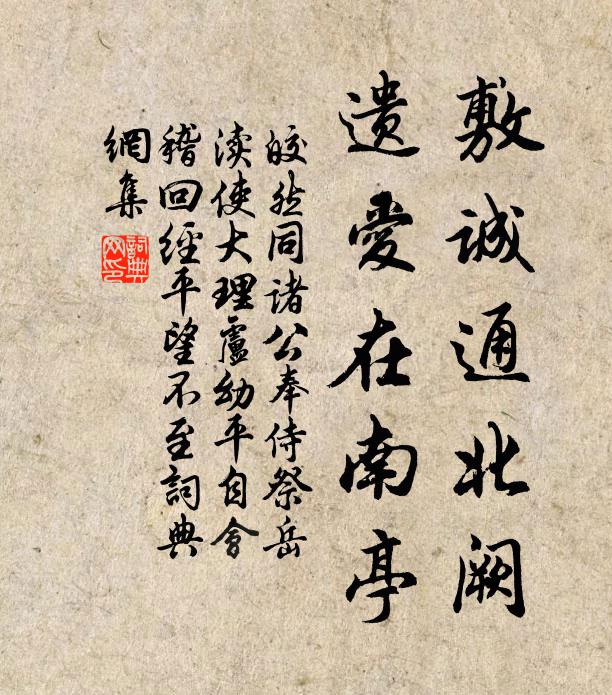 敷誠通北阙
遗愛在南亭
皎然同诸公奉侍祭岳
渎使大理盧幼平自會
稽回經平望不至詞典
網集
詞典
网印